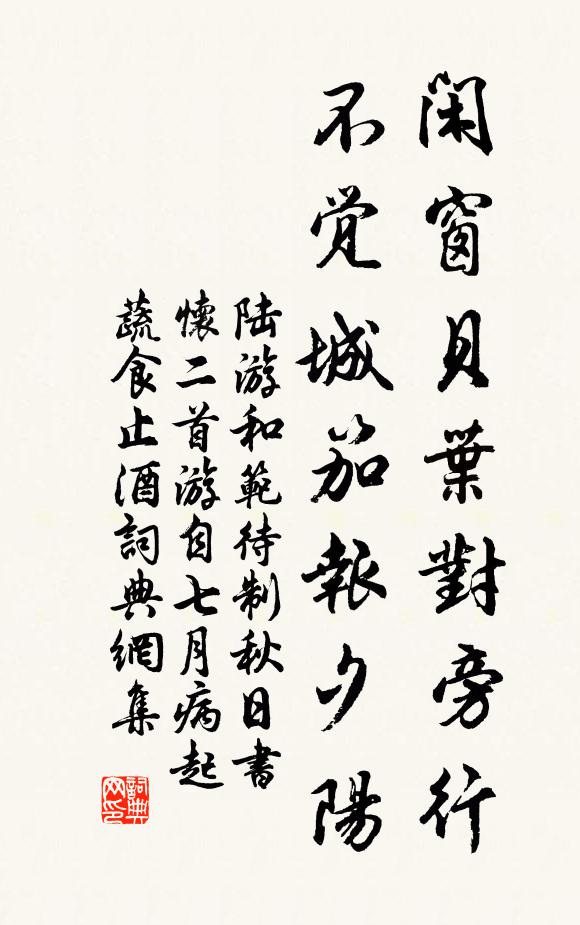 闲窗貝葉對旁行
不覚城笳報夕陽
陆游和範待制秋日書
懷二首游自七月病起
蔬食止酒詞典網集
詞典网印